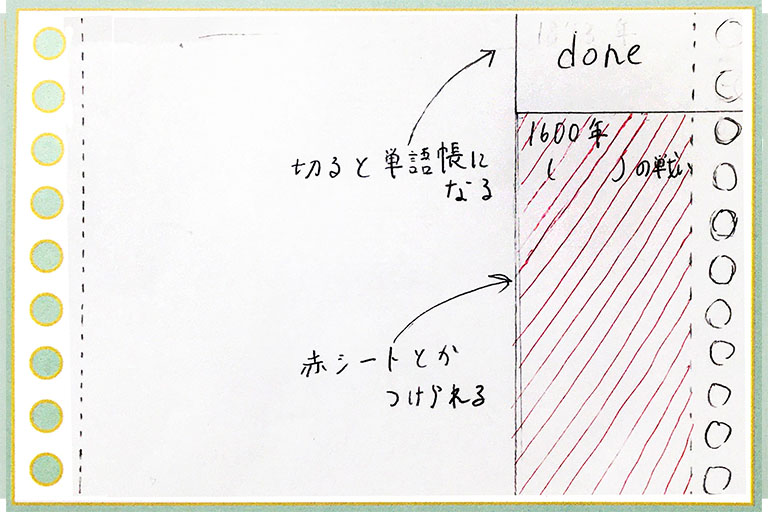 done
1600年
(　　)の戦い
切ると単語帳に
なる
赤シートとか
つけられる